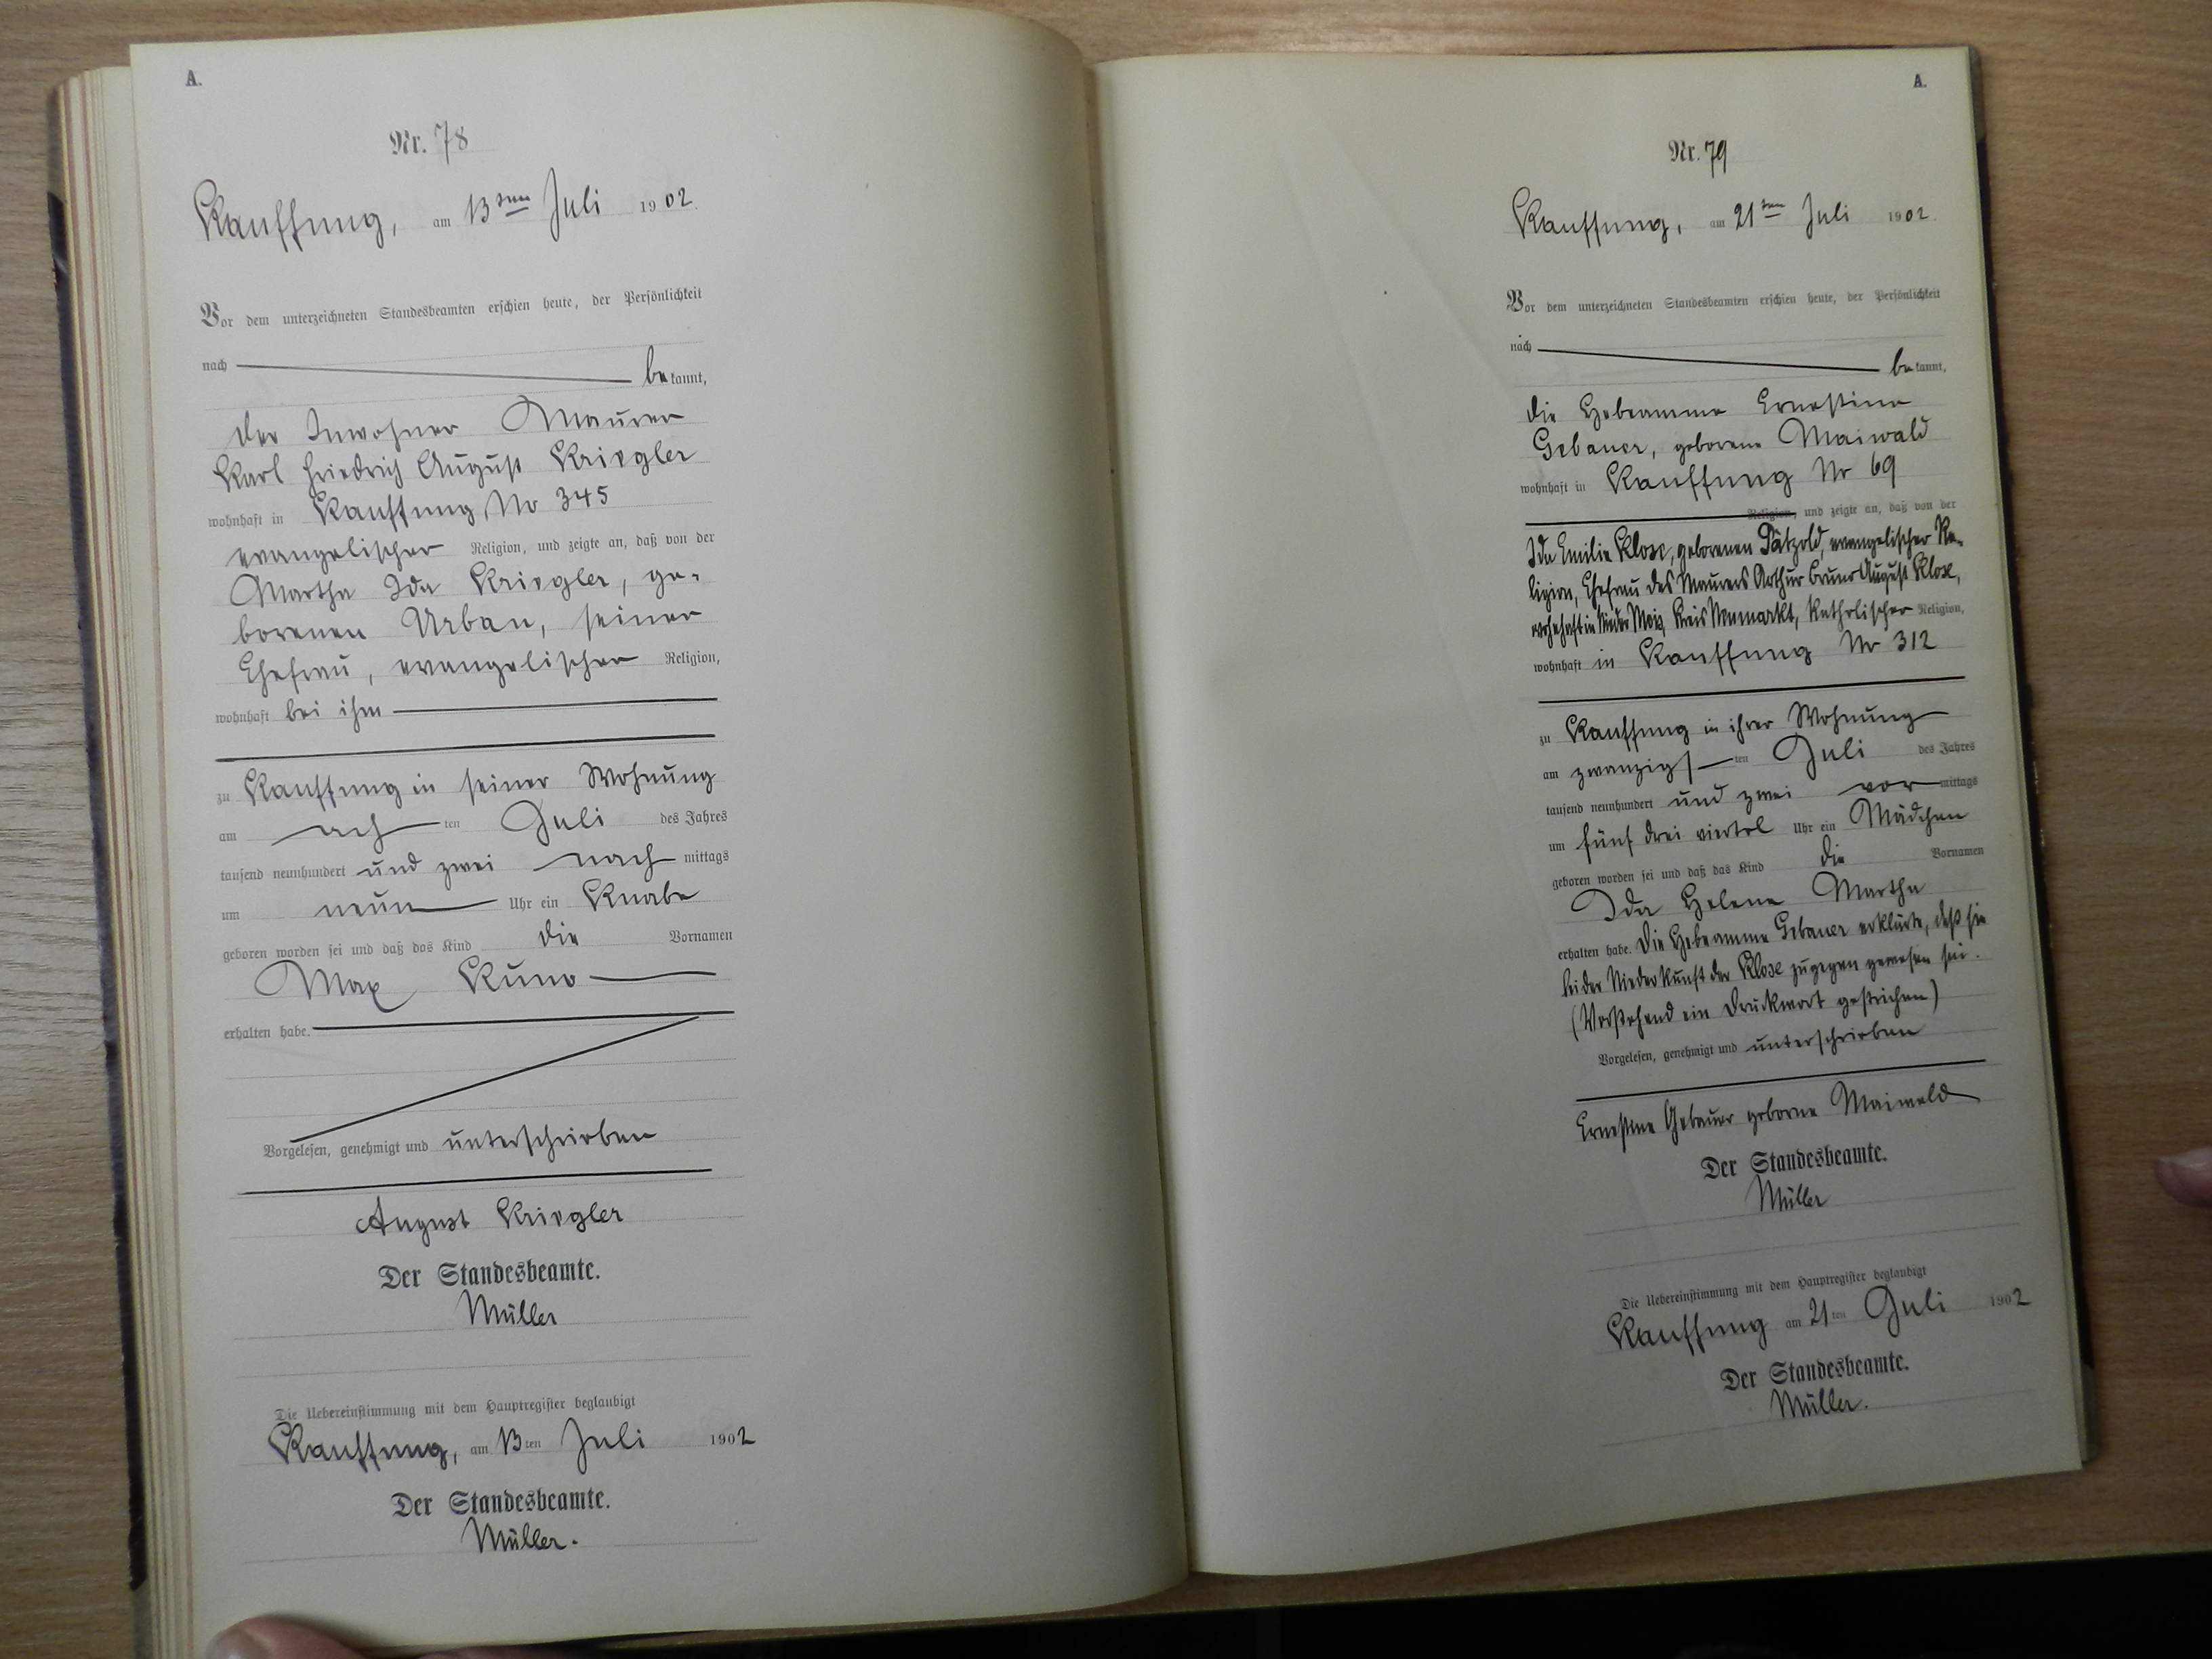 A.
Nr. 78
Kauffung, am 13ten Juli 1902.
Vor dem unterzeichneten Standesbeamten erschien heute, der Persönlichkeit
nach bekannt,
der Inwohner Maurer
Karl Friedrich August Kriegler
wohnhaft in Kauffung No 345
evangelischer Religion, und zeigte an, daß von der
Martha Ida Kriegler, ge-
borenen Urban, seiner
Ehefrau, evangelischer Religion,
wohnhaft bei ihm
zu Kauffung in seiner Wohnung
am ach ten Juli des Jahres
tausend neunhundert und zwei nach mittags
um neun Uhr ein Knabe
geboren worden sei und daß das Kind die Vornamen
Max Kuno
erhalten habe.
Vorgelesen, genehmigt und unterschrieben
August Kriegler
Der Standesbeamte.
Müller
Die Uebereinstimmung mit dem Hauptregister beglaubigt
Kauffung, am 13ten Juli 1902
Der Standesbeamte.
Müller.
A.
Nr. 79
Kauffung, am 21ten Juli 1902.
Vor dem unterzeichneten Standesbeamten erschien heute, der Persönlichkeit
nach bekannt,
die Hebeamme Ernestine
Gebauer, geborene Maiwald
wohnhaft in Kauffung No 69
Religion, und zeigte an, daß von der
Ida Emilie Klose, geborenen Pätzold, evangelischer Re-
ligion, Ehefrau des Maurers Arthur Bruno August Klose,
wohnhaft in Nieder Mois, Kreis Neumarkt, katholischer Religion,
wohnhaft in Kauffung No 312
zu Kauffung in ihrer Wohnung
am zwanzigsten Juli des Jahres
tausend neunhundert und zwei vor mittags
um fünf drei viertel Uhr ein Mädchen
geboren worden sei und daß das Kind die Vornamen
Ida Helene Martha
erhalten habe. Die Hebeamme Gebauer erklärte, daß sie
bei der Niederkunft der Klose zugegen gewesen sei.
(Vorstehend ein Druckwort gestrichen)
Vorgelesen, genehmigt und unterschrieben
Ernestine Gebauer geborne Maiwald
Der Standesbeamte.
Müller
Die Uebereinstimmung mit dem Hauptregister beglaubigt
Kauffung am 21ten Juli 1902
Der Standesbeamte.
Müller.